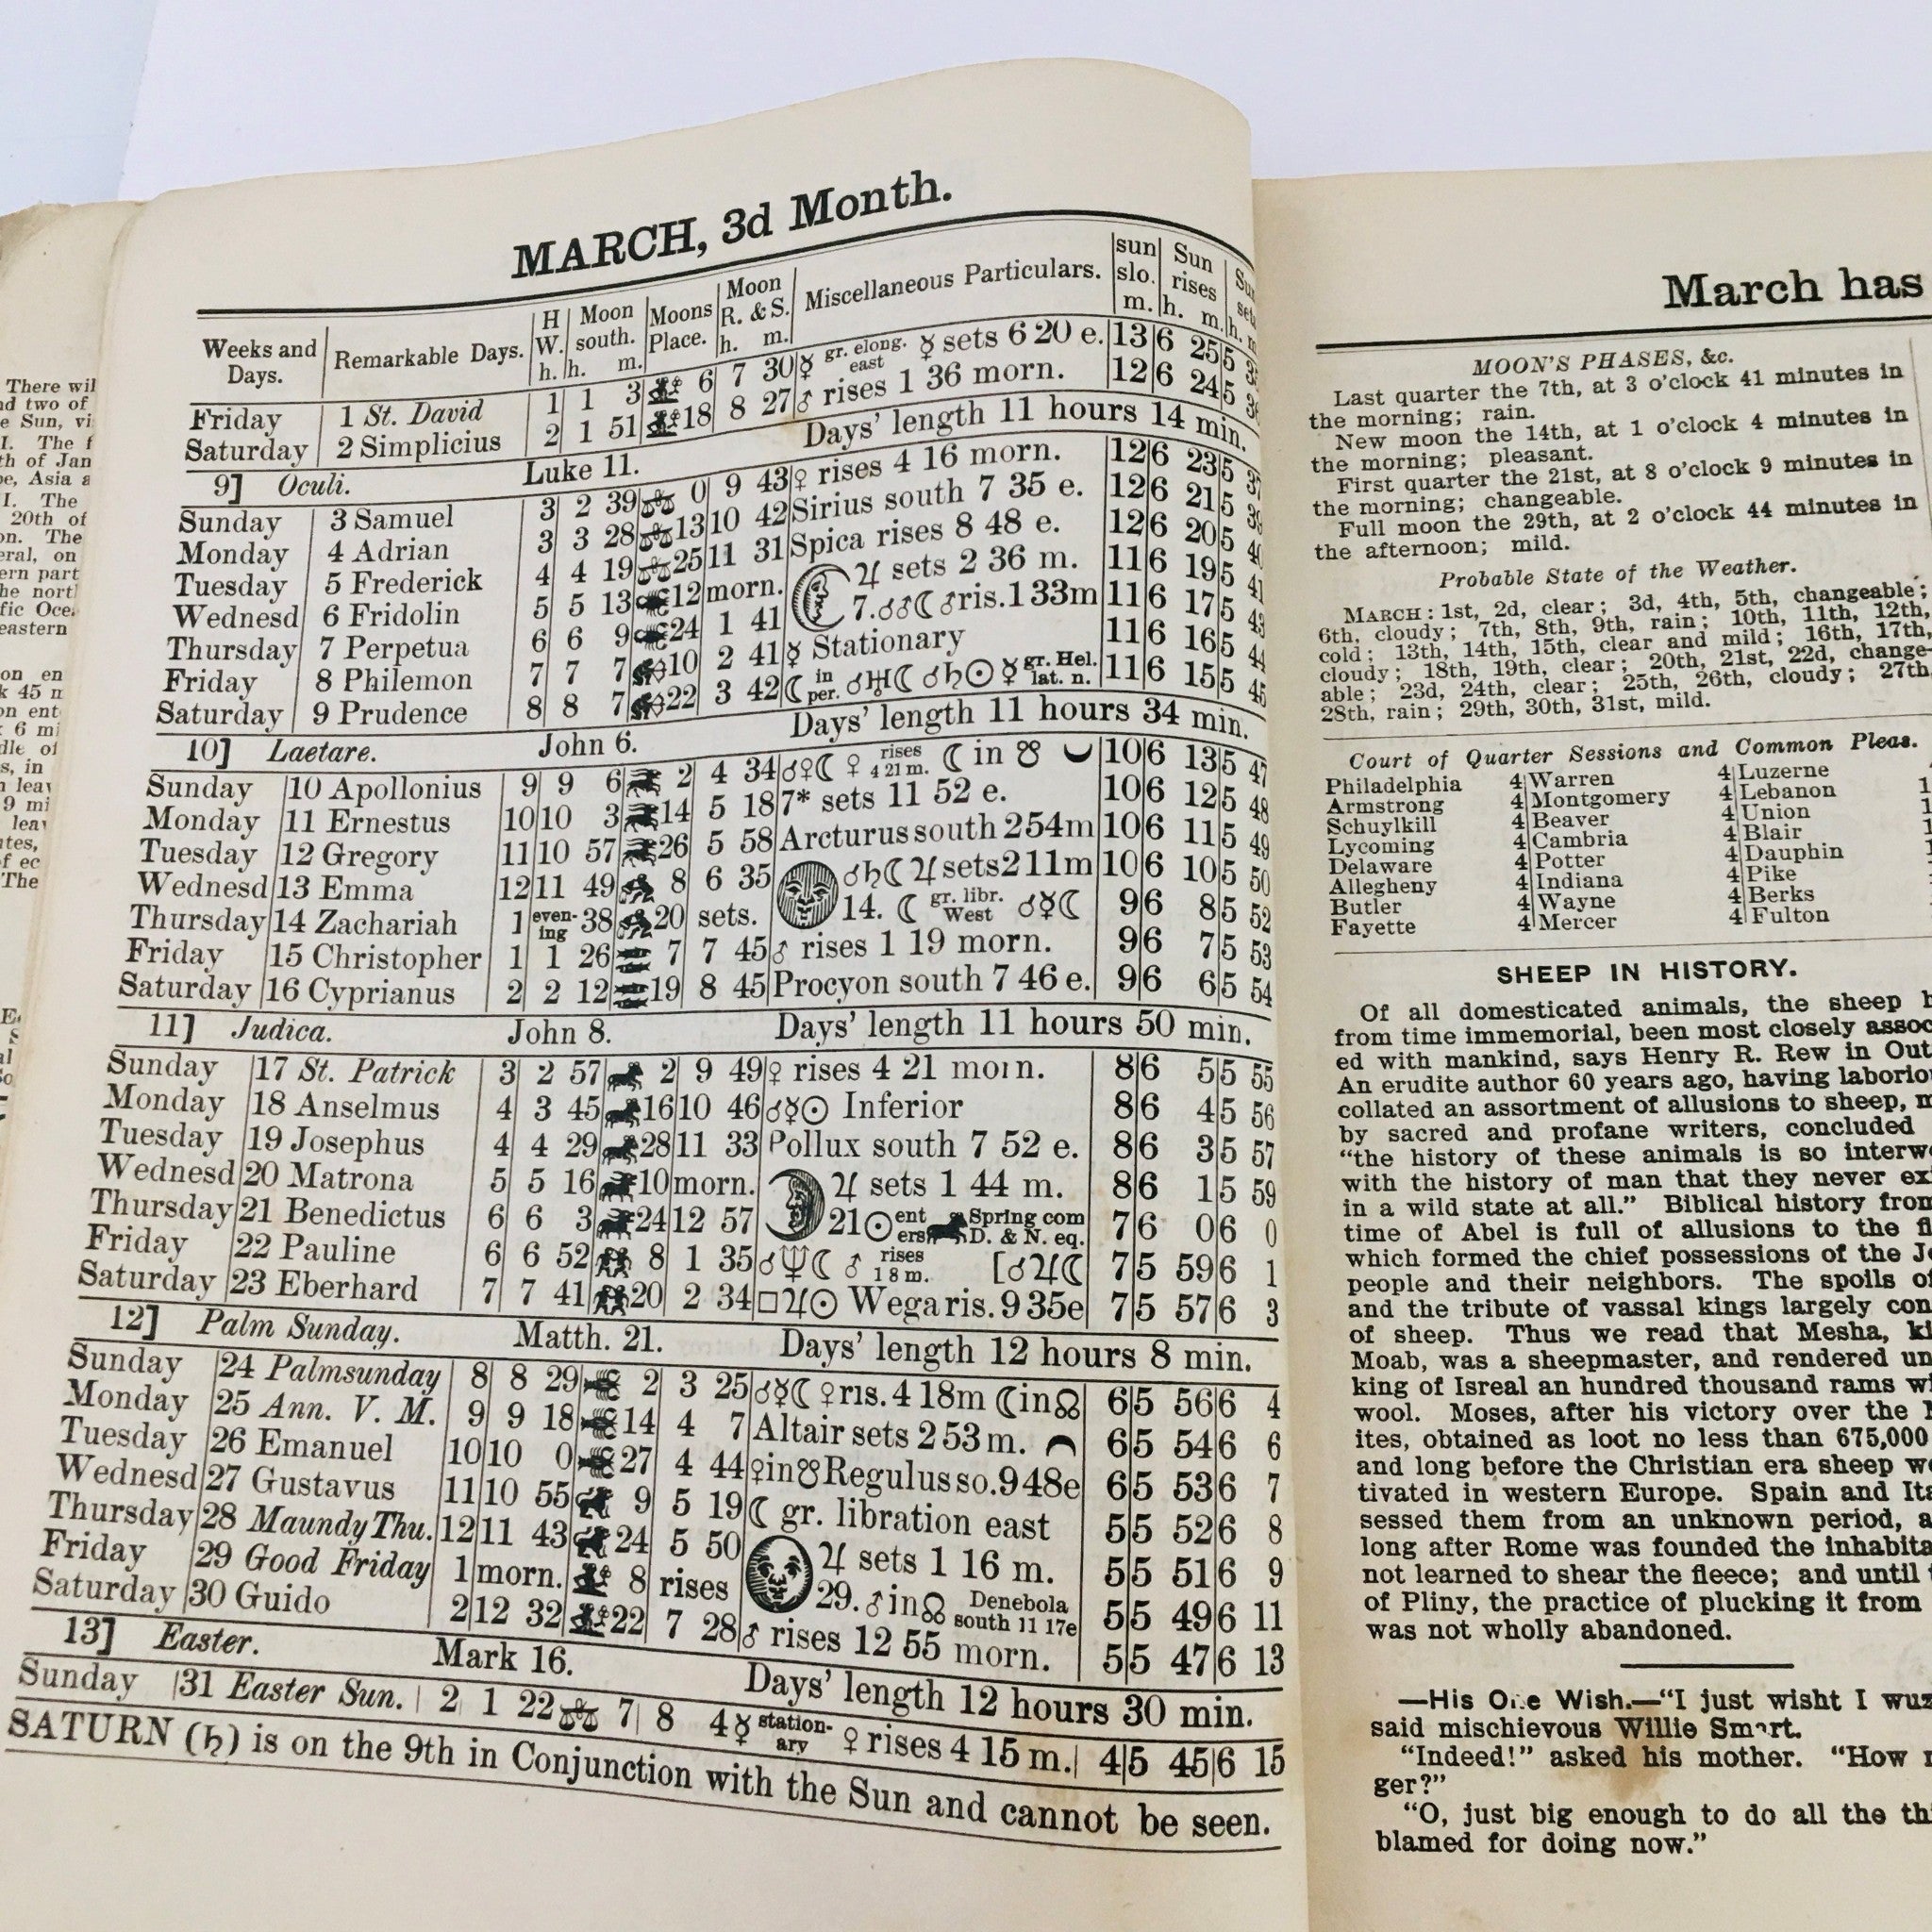 There wil
nd two of
e Sun, vi
I. The f
th of Jan
pe, Asia a
I. The
20th of
on. The
eral, on
ern part
he nort
fic Oce
eastern
on en
k 45 m
on ent
: 6 mi
dle of
s, in
n leav
9 mi
leav
ites,
of ec
The
MARCH, 3d Month.
Weeks and Days. Remarkable Days. H W. h. Moon south. h. m. Moons Place. Moon R. & S. h. m. Miscellaneous Particulars. sun slo. m. Sun rises h. m. h. m.
Friday 1 St. David 1 1 3 6 7 30 ☿ gr. elong. east ☿ sets 6 20 e. 13 6 25 5
Saturday 2 Simplicius 2 1 51 18 8 27 ♂ rises 1 36 morn. 12 6 24 5
9] Oculi. Luke 11. Days' length 11 hours 14 min.
Sunday 3 Samuel 3 2 39 0 9 43 ♀ rises 4 16 morn. 12 6 23 5 37
Monday 4 Adrian 3 3 28 13 10 42 Sirius south 7 35 e. 12 6 21 5 39
Tuesday 5 Frederick 4 4 19 25 11 31 Spica rises 8 48 e. 12 6 20 5 40
Wednesd 6 Fridolin 5 5 13 12 morn. ♃ sets 2 36 m. 11 6 19 5 41
Thursday 7 Perpetua 6 6 9 24 1 41 7. ☌♂☾ ♂ ris. 1 33 m 11 6 17 5 43
Friday 8 Philemon 7 7 7 10 2 41 ☿ Stationary 11 6 16 5 44
Saturday 9 Prudence 8 8 7 22 3 42 ☾ in per. ☌♅☾ ☌♄☉ ☿ gr. Hel. lat. n. 11 6 15 5 45
10] Laetare. John 6. Days' length 11 hours 34 min.
Sunday 10 Apollonius 9 9 6 2 4 34 ☌♀☾ ♀ rises 4 21 m. ☾ in ☋ 10 6 13 5 47
Monday 11 Ernestus 10 10 3 14 5 18 7* sets 11 52 e. 10 6 12 5 48
Tuesday 12 Gregory 11 10 57 26 5 58 Arcturus south 2 54 m 10 6 11 5 49
Wednesd 13 Emma 12 11 49 8 6 35 ☌♄☾ ♃ sets 2 11 m 10 6 10 5 50
Thursday 14 Zachariah 1 even-ing 38 20 sets. 14. ☾ gr. libr. West ☌☿☾ 9 6 8 5 52
Friday 15 Christopher 1 1 26 7 7 45 ♂ rises 1 19 morn. 9 6 7 5 53
Saturday 16 Cyprianus 2 2 12 19 8 45 Procyon south 7 46 e. 9 6 6 5 54
11] Judica. John 8. Days' length 11 hours 50 min.
Sunday 17 St. Patrick 3 2 57 2 9 49 ♀ rises 4 21 morn. 8 6 5 5 55
Monday 18 Anselmus 4 3 45 16 10 46 ☌☿☉ Inferior 8 6 4 5 56
Tuesday 19 Josephus 4 4 29 28 11 33 Pollux south 7 52 e. 8 6 3 5 57
Wednesd 20 Matrona 5 5 16 10 morn. ♃ sets 1 44 m. 8 6 1 5 59
Thursday 21 Benedictus 6 6 3 24 12 57 21 ☉ ent ers Spring com D. & N. eq. 7 6 0 6 0
Friday 22 Pauline 6 6 52 8 1 35 ☌♆☾ ♂ rises 1 8 m. [☌♃☾ 7 5 59 6 1
Saturday 23 Eberhard 7 7 41 20 2 34 □♃☉ Wega ris. 9 35 e 7 5 57 6 3
12] Palm Sunday. Matth. 21. Days' length 12 hours 8 min.
Sunday 24 Palmsunday 8 8 29 2 3 25 ☌☿☾ ♀ ris. 4 18 m ☾ in ☊ 6 5 56 6 4
Monday 25 Ann. V. M. 9 9 18 14 4 7 Altair sets 2 53 m. 6 5 54 6 6
Tuesday 26 Emanuel 10 10 0 27 4 44 ♀ in ☋ Regulus so. 9 48 e 6 5 53 6 7
Wednesd 27 Gustavus 11 10 55 9 5 19 ☾ gr. libration east 5 5 52 6 8
Thursday 28 Maundy Thu. 12 11 43 24 5 50 ♃ sets 1 16 m. 5 5 51 6 9
Friday 29 Good Friday 1 morn. 8 rises 29. ♂ in ☊ Denebola south 11 17 e 5 5 49 6 11
Saturday 30 Guido 2 12 32 22 7 28 ♂ rises 12 55 morn. 5 5 47 6 13
13] Easter. Mark 16. Days' length 12 hours 30 min.
Sunday 31 Easter Sun. 2 1 22 7 8 4 ☿ station-ary ♀ rises 4 15 m. 4 5 45 6 15
SATURN (♄) is on the 9th in Conjunction with the Sun and cannot be seen.
March has
MOON'S PHASES, &c.
Last quarter the 7th, at 3 o'clock 41 minutes in
the morning; rain.
New moon the 14th, at 1 o'clock 4 minutes in
the morning; pleasant.
First quarter the 21st, at 8 o'clock 9 minutes in
the morning; changeable.
Full moon the 29th, at 2 o'clock 44 minutes in
the afternoon; mild.
Probable State of the Weather.
MARCH: 1st, 2d, clear; 3d, 4th, 5th, changeable;
6th, cloudy; 7th, 8th, 9th, rain; 10th, 11th, 12th,
cold; 13th, 14th, 15th, clear and mild; 16th, 17th,
cloudy; 18th, 19th, clear; 20th, 21st, 22d, change-
able; 23d, 24th, clear; 25th, 26th, cloudy; 27th,
28th, rain; 29th, 30th, 31st, mild.
Court of Quarter Sessions and Common Pleas.
Philadelphia 4 Warren 4 Luzerne
Armstrong 4 Montgomery 4 Lebanon 1
Schuylkill 4 Beaver 4 Union 1
Lycoming 4 Cambria 4 Blair 1
Delaware 4 Potter 4 Dauphin 1
Allegheny 4 Indiana 4 Pike 1
Butler 4 Wayne 4 Berks 1
Fayette 4 Mercer 4 Fulton 1
SHEEP IN HISTORY.
Of all domesticated animals, the sheep h
from time immemorial, been most closely assoc
ed with mankind, says Henry R. Rew in Out
An erudite author 60 years ago, having laborio
collated an assortment of allusions to sheep, m
by sacred and profane writers, concluded
"the history of these animals is so interw
with the history of man that they never exi
in a wild state at all." Biblical history from
time of Abel is full of allusions to the fl
which formed the chief possessions of the Je
people and their neighbors. The spoils of
and the tribute of vassal kings largely con
of sheep. Thus we read that Mesha, ki
Moab, was a sheepmaster, and rendered un
king of Isreal an hundred thousand rams wi
wool. Moses, after his victory over the M
ites, obtained as loot no less than 675,000
and long before the Christian era sheep we
tivated in western Europe. Spain and Ita
sessed them from an unknown period, a
long after Rome was founded the inhabita
not learned to shear the fleece; and until t
of Pliny, the practice of plucking it from
was not wholly abandoned.
—His One Wish.—"I just wisht I wuz
said mischievous Willie Smart.
"Indeed!" asked his mother. "How m
ger?"
"O, just big enough to do all the thi
blamed for doing now."